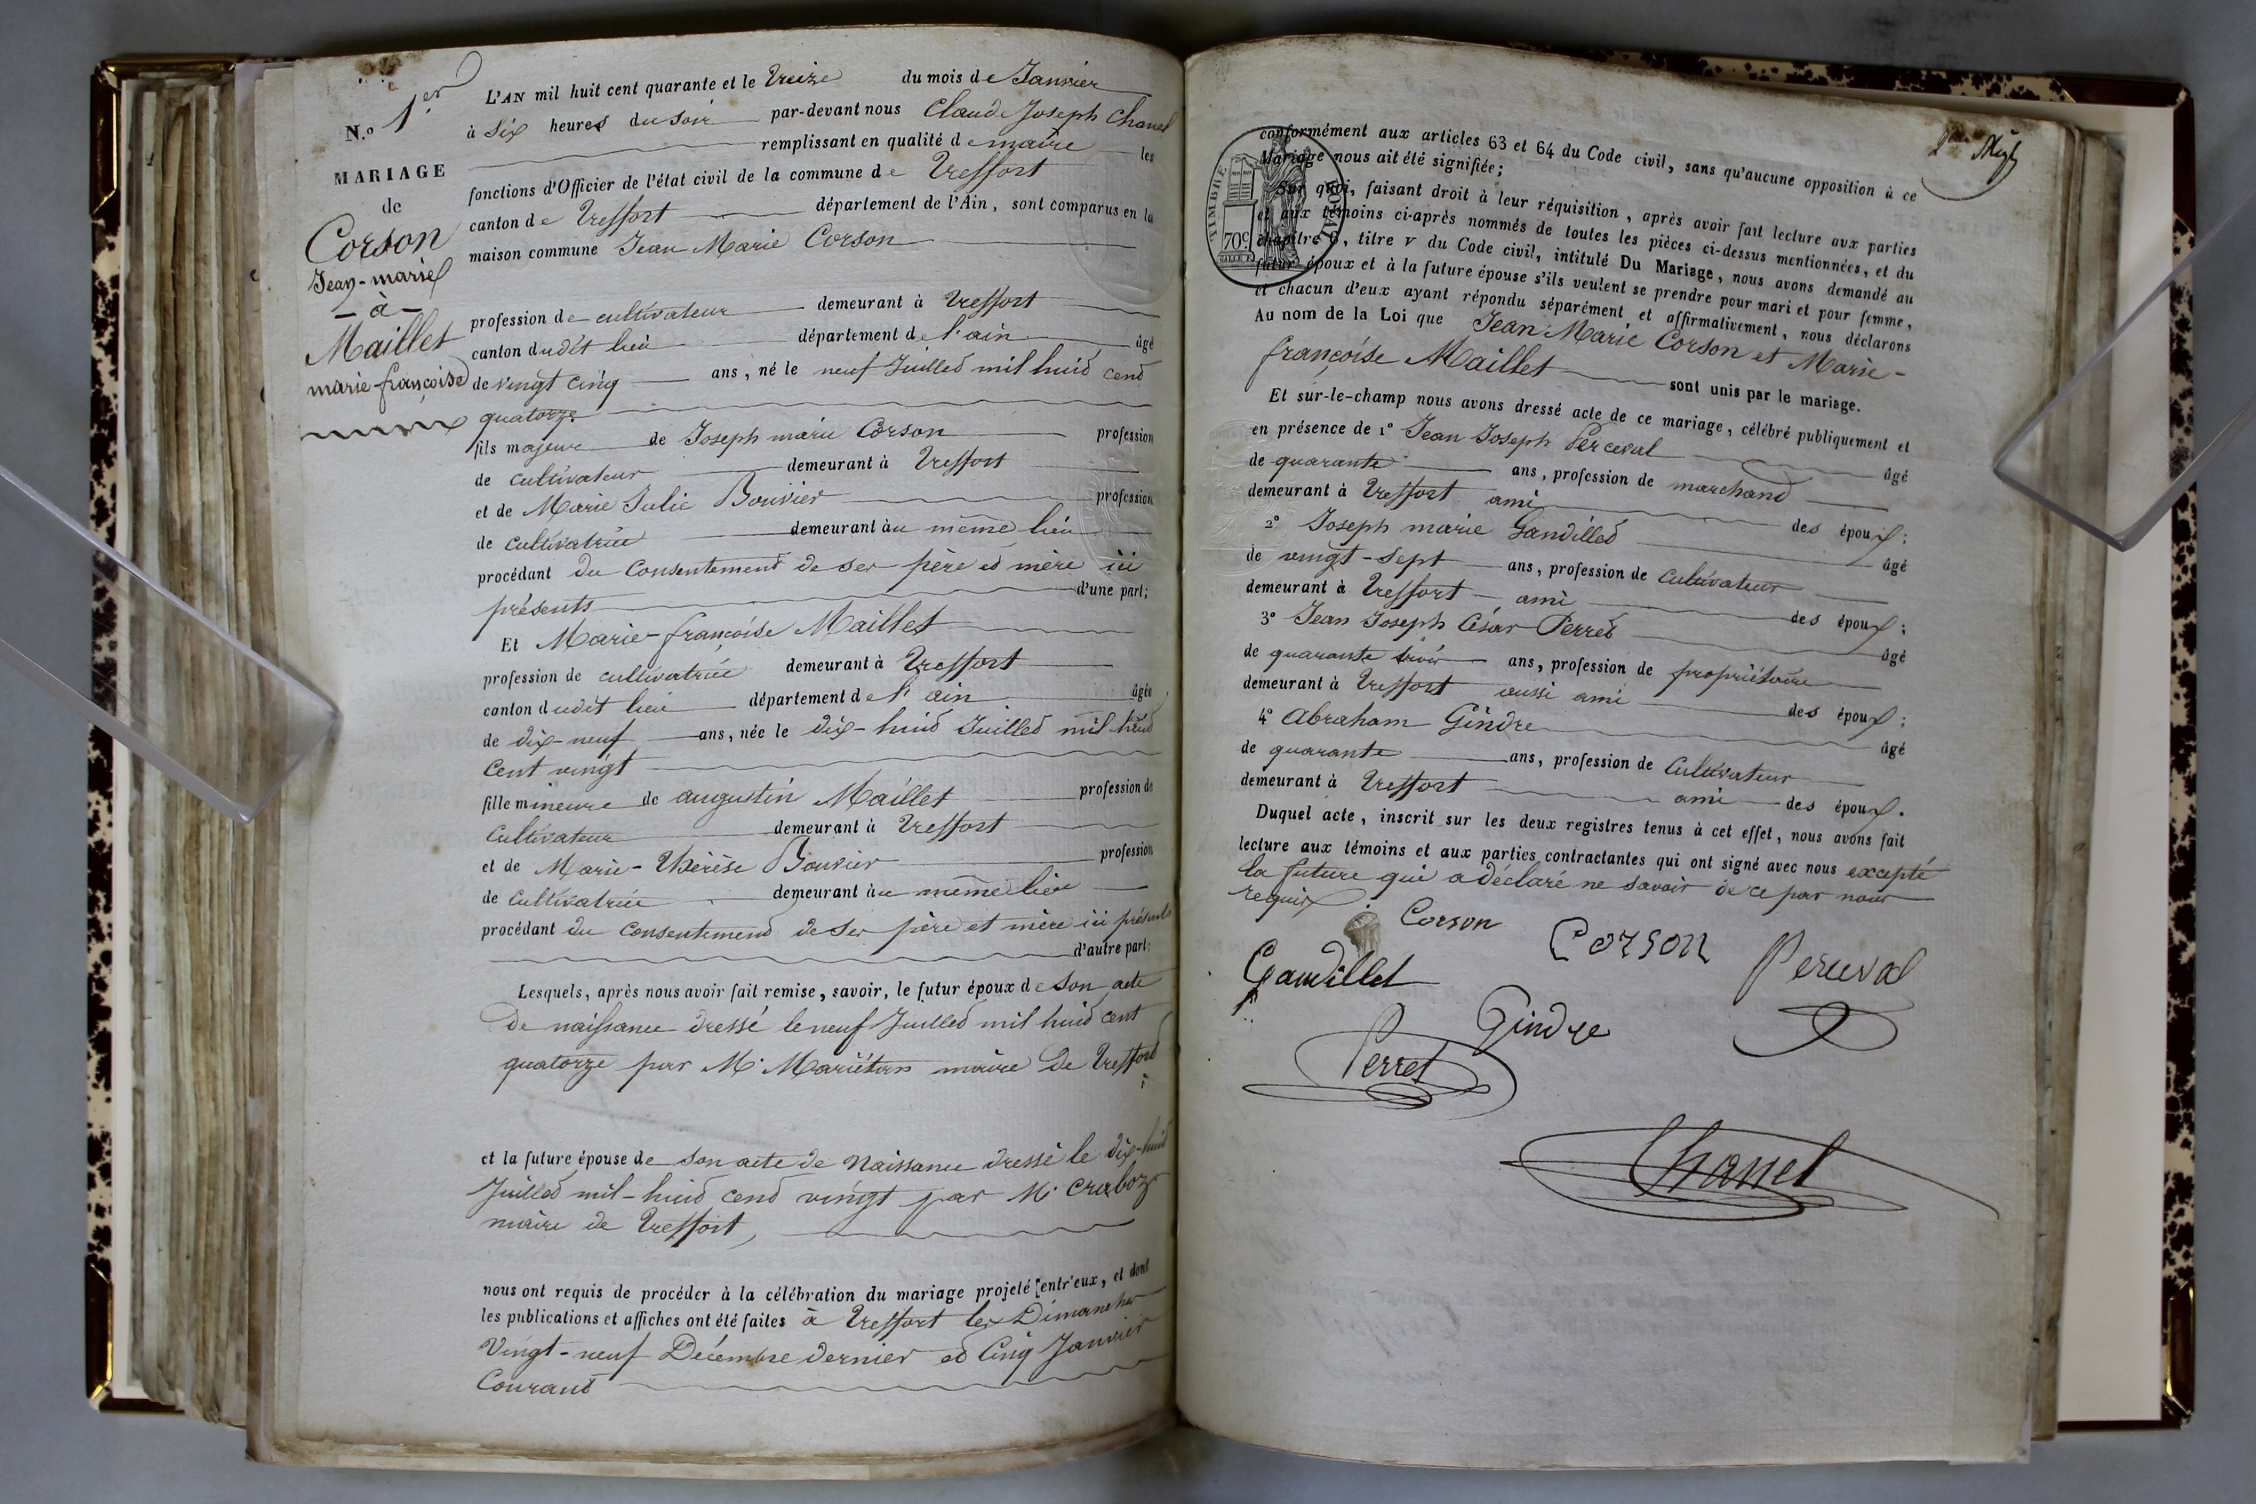 N.o 1er
MARIAGE
de
Corson
Jean-marie
- à -
Maillet
marie françoise
L'AN mil huit cent quarante et le treize du mois de Janvier
à six heures du soir par-devant nous Claude Joseph Chanel
remplissant en qualité de maire les
fonctions d'Officier de l'état civil de la commune de Treffort
canton de Treffort département de l'Ain, sont comparus en la
maison commune Jean Marie Corson
profession de cultivateur demeurant à Treffort
canton dudit lieu département de l'ain âgé
de vingt cinq ans, né le neuf Juillet mil huit cent
quatorze
fils majeur de Joseph marie Corson profession
de cultivateur demeurant à Treffort
et de Marie Julie Bouvier profession
de cultivatrice demeurant au même lieu
procédant du consentement de ses père et mère ici
présents d'une part;
Et Marie-françoise Maillet
profession de cultivatrice demeurant à Treffort
canton dudit lieu département de l'ain âgée
de dix-neuf ans, née le dix-huit Juillet mil huit
cent vingt
fille mineure de augustin Maillet profession de
Cultivateur demeurant à Treffort
et de Marie-Thérèse Bouvier profession
de Cultivatrice demeurant au même lieu
procédant du consentement de ses père et mère ici présents
d'autre part:
Lesquels, après nous avoir fait remise, savoir, le futur époux de son acte
de naissance dressé le neuf Juillet mil huit cent
quatorze par Mr Mariétan maire de Treffort
;
et la future épouse de son acte de Naissance dressé le dix-huit
Juillet mil-huit cent vingt par Mr Craboz
maire de Treffort,
nous ont requis de procéder à la célébration du mariage projeté entr'eux, et dont
les publications et affiches ont été faites à Treffort les Dimanches
Vingt-neuf Décembre dernier et Cinq Janvier
Courant
2me
TIMBRE ROYAL
70c
conformément aux articles 63 et 64 du Code civil, sans qu'aucune opposition à ce
Mariage nous ait été signifiée;
Sur quoi, faisant droit à leur réquisition, après avoir fait lecture aux parties
et aux témoins ci-après nommés de toutes les pièces ci-dessus mentionnées, et du
chapitre 6, titre v du Code civil, intitulé Du Mariage, nous avons demandé au
futur époux et à la future épouse s'ils veulent se prendre pour mari et pour femme,
et chacun d'eux ayant répondu séparément et affirmativement, nous déclarons
Au nom de la Loi que Jean Marie Corson et Marie-
françoise Maillet sont unis par le mariage.
Et sur-le-champ nous avons dressé acte de ce mariage, célébré publiquement et
en présence de 1° Jean Joseph Perceval âgé
de quarante ans, profession de marchand
demeurant à Treffort ami des époux;
2° Joseph marie Gandillet âgé
de vingt-sept ans, profession de Cultivateur
demeurant à Treffort ami des époux;
3° Jean Joseph César Perret âgé
de quarante trois ans, profession de propriétaire
demeurant à Treffort aussi ami des époux;
4° Abraham Gindre âgé
de quarante ans, profession de Cultivateur
demeurant à Treffort ami des époux.
Duquel acte, inscrit sur les deux registres tenus à cet effet, nous avons fait
lecture aux témoins et aux parties contractantes qui ont signé avec nous excepté
la future qui a déclaré ne savoir de ce par nous
requise
Corson
Corson
Perceval
Gandillet
Gindre
Perret
Chanel